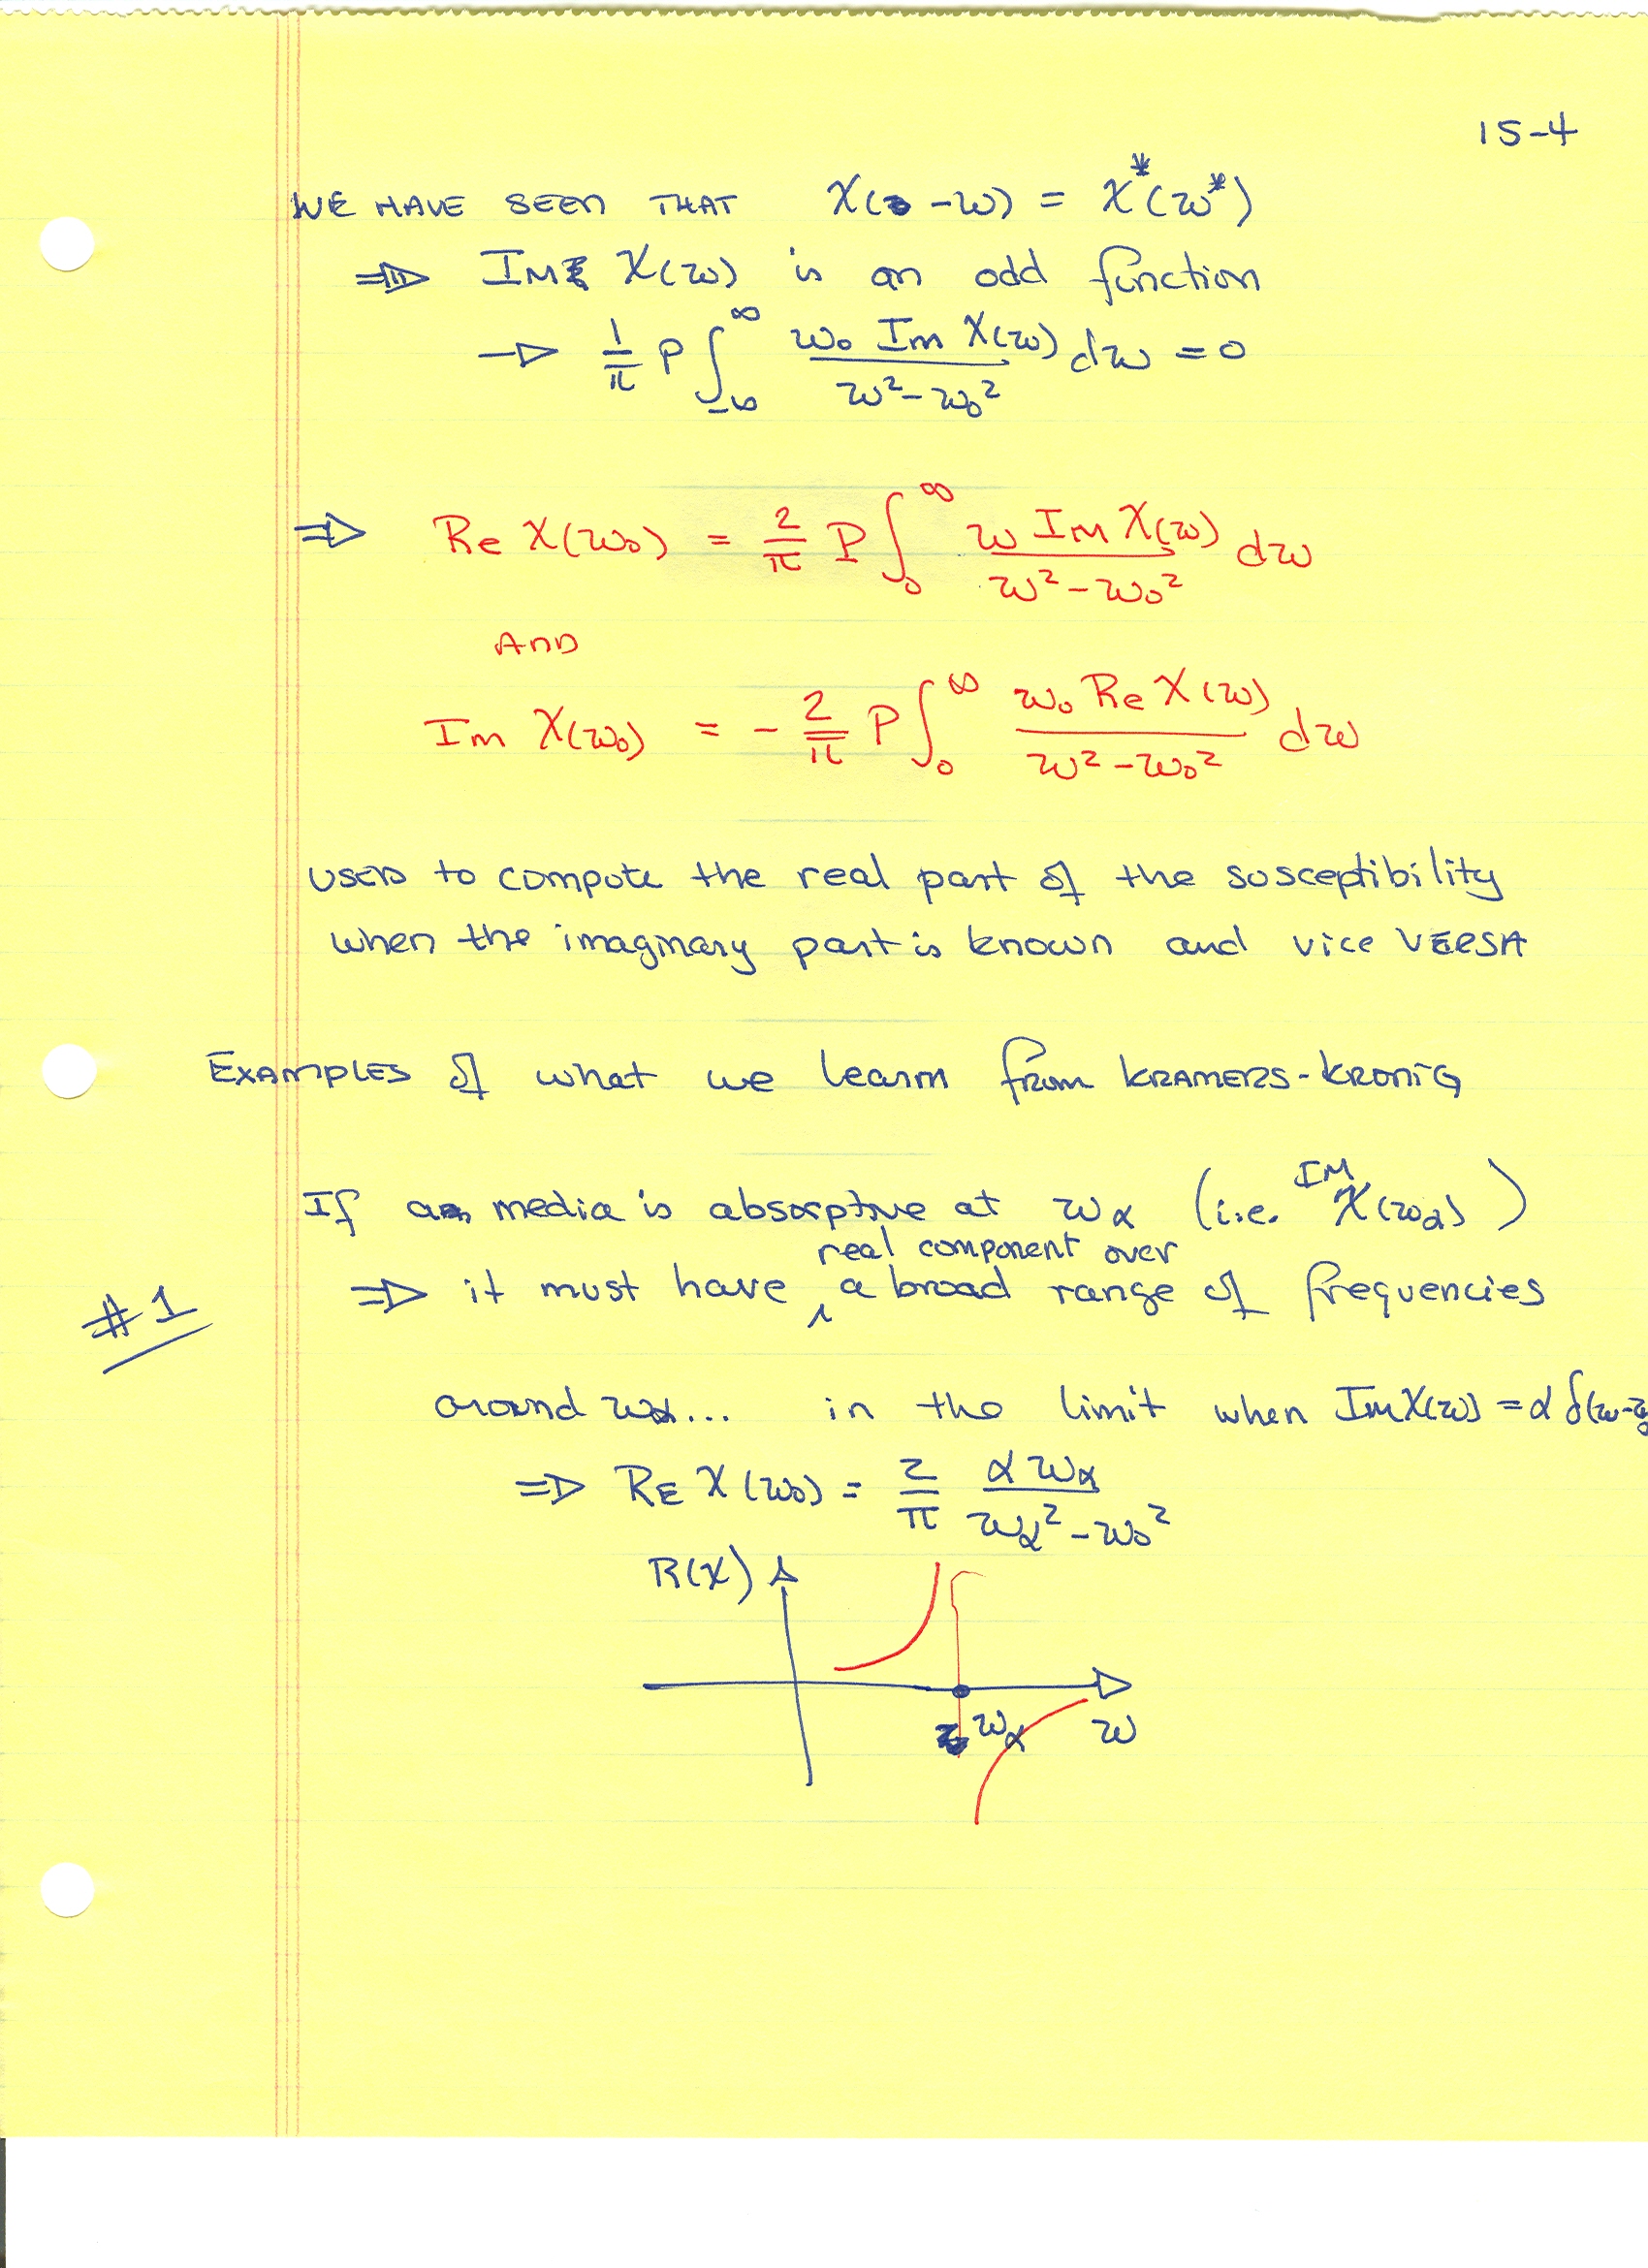 15-4
WE HAVE SEEN THAT χ(-ω) = χ*(ω*)
⇒ IM χ(ω) is an odd function
→ 1/π P∫_{-∞}^{∞} ω₀ Im χ(ω) / ω²-ω₀² dω = 0
⇒ Re χ(ω₀) = 2/π P∫_0^∞ ω Im χ(ω) / ω²-ω₀² dω
AND
Im χ(ω₀) = - 2/π P∫_0^∞ ω₀ Re χ(ω) / ω²-ω₀² dω
USED to compute the real part of the susceptibility
when the imaginary part is known and vice VERSA
EXAMPLES of what we learn from KRAMERS-KRONIG
If a media is absorptive at ω_α (i.e. IM χ(ω_α))
#1 ⇒ it must have real component over a broad range of frequencies
around ω_α... in the limit when Im χ(ω) = α δ(ω-
⇒ RE χ(ω₀) = 2/π α ω_α / ω_α²-ω₀²
R(χ)
ω_α ω